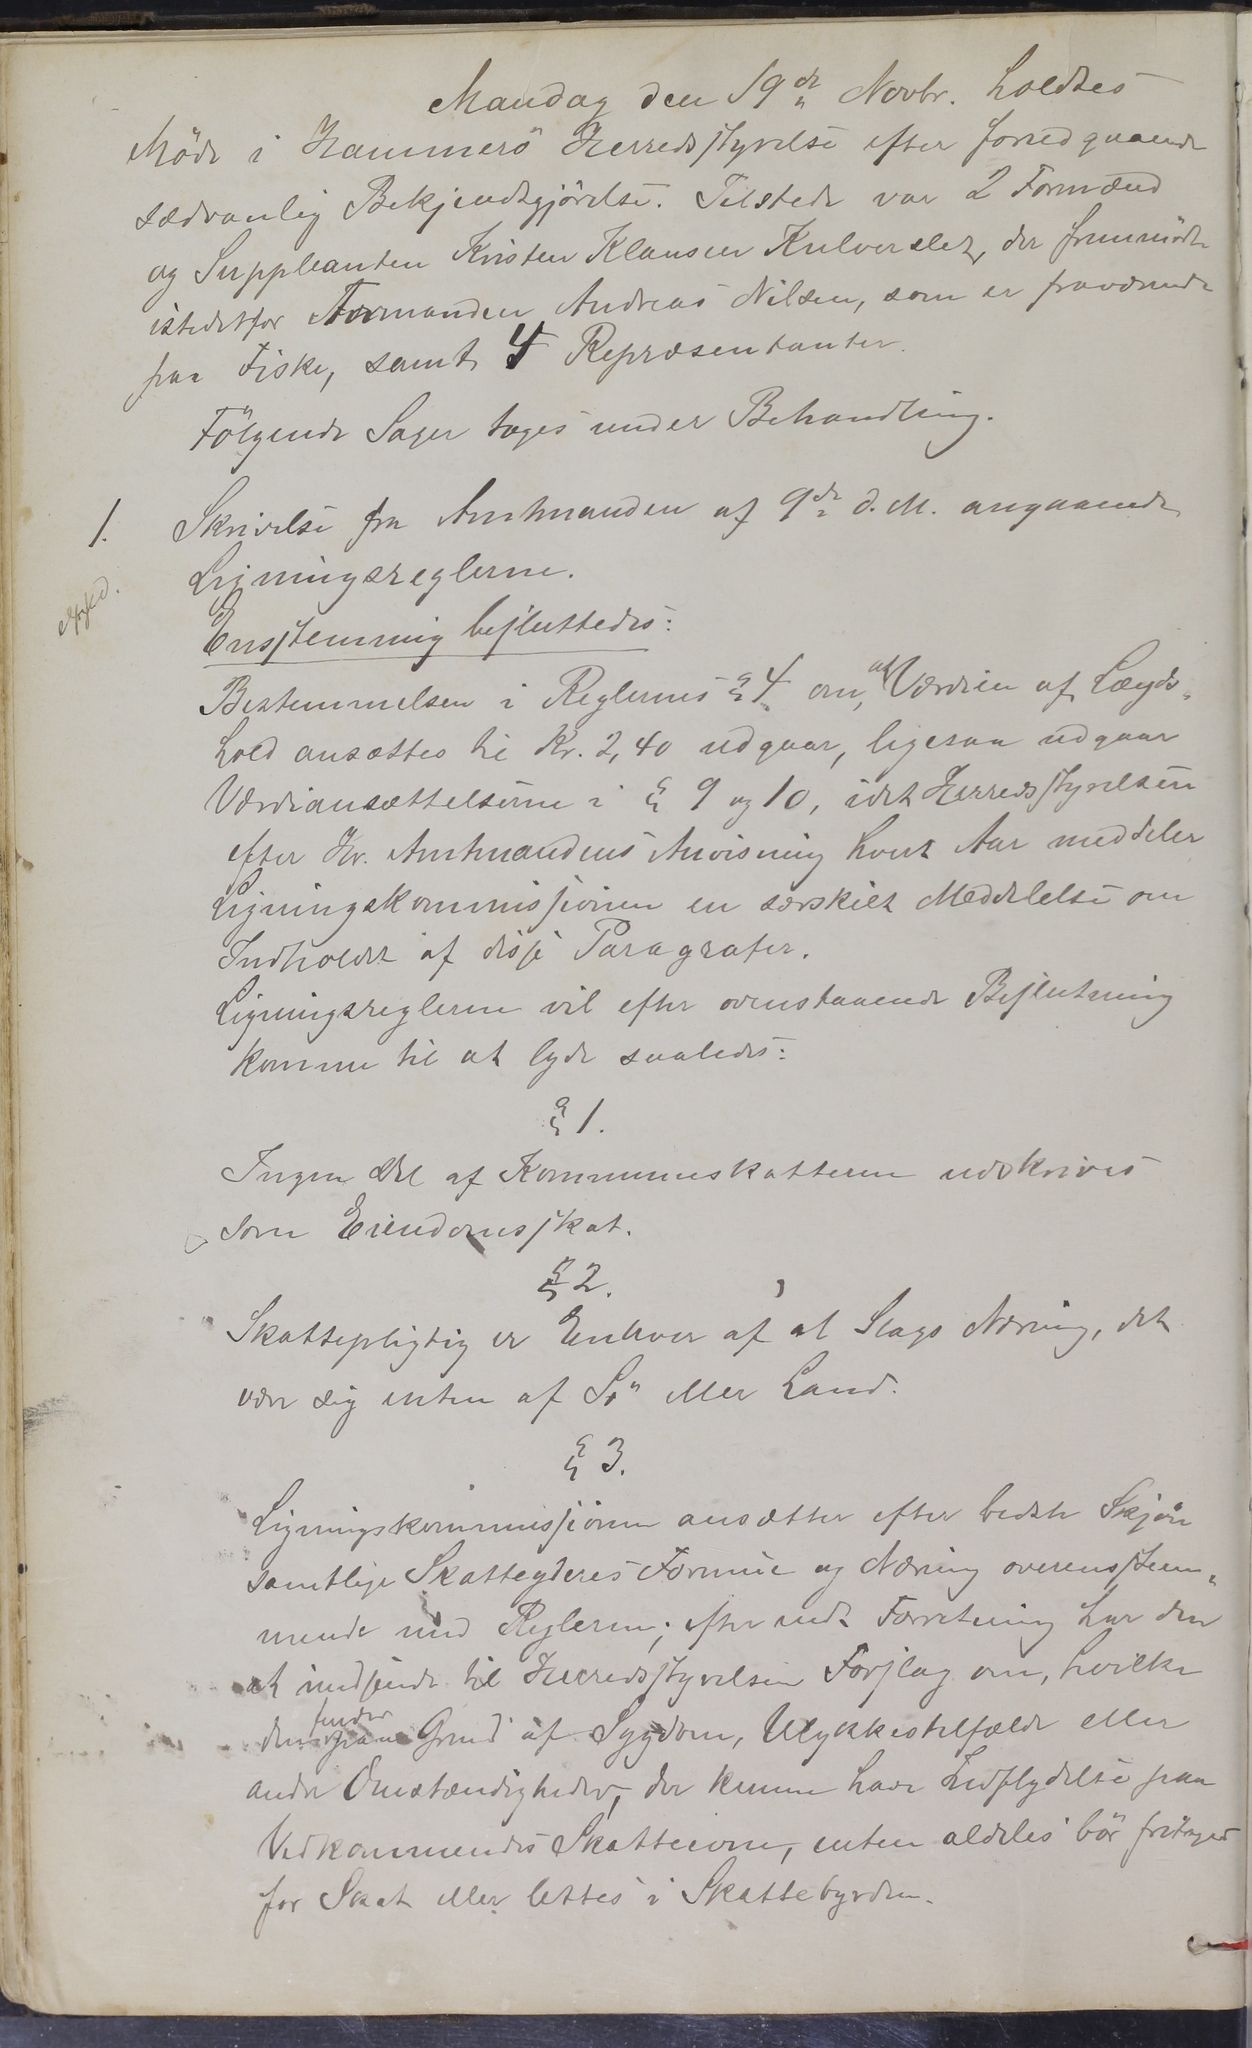 Mandag den 19de Novbr. holdtes
Möde i Hammerö Herredsstyrelse efter foredgaaende
sædvanlig Bekjendtgjörelse. Tilstede var 2 Formænd
og Suppleanten Kristen Klausen Kulverslet, der fremmödte
istedetfor Formanden Andreas Nilsen, som er fraværende
paa Fiske, samt 4 Repræsentanter.
Fölgende Sager toges under Behandling.
1. Skrivelse fra Amtmanden af 9de d. M. angaaende
Ligningsreglerne.
Exped.
Enstemmig besluttedes:
Bestemmelsen i Reglernes § 4 om, at Værdien af Lægds-
hold ansættes til Kr. 2,40 udgaar, ligesaa udgaar
Værdiansættelserne i § 9 og 10, idet Herredsstyrelsen
efter Hr. Amtmandens Anvisning hvert Aar meddeler
Ligningskommissionen en særskilt Meddelelse om
Indholdet af disse Paragrafer.
Ligningsreglerne vil efter ovenstaaende Beslutning
komme til at lyde saaledes:
§ 1.
Ingen Del af Kommuneskatterne udskrives
som Eiendomsskat.
§ 2.
Skattepligtig er Enhver af al Slags Næring, det
være sig enten af Sö eller Land.
§ 3.
Ligningskommissionen ansætter efter bedste Skjön
samtlige Skatteyderes Formue og Næring overensstem-
mende med Reglerne; efter endt Forretning har den
at indsende til Herredsstyrelsen Forslag om, hvilke
den finder paa Grund af Sygdom, Ulykkestilfælde eller
andre Omstændigheder, der kunne have Indflydelse paa
Vedkommendes Skatteevne, enten aldeles bör fritages
for Skat eller lettes i Skattebyrden.